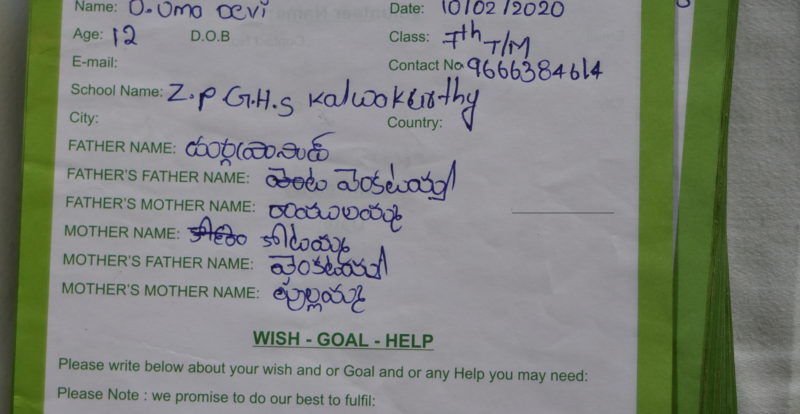 Name: D. Uma Devi Date: 10/02/2020
Age: 12 D.O.B Class: 7th T/M
E-mail: Contact No 9666384614
School Name: Z.P G.H.S Kalwakurthy
City: Country:
FATHER NAME:
FATHER'S FATHER NAME: వెంకటయ్య
FATHER'S MOTHER NAME: రాములమ్మ
MOTHER NAME:
MOTHER'S FATHER NAME: వెంకటయ్య
MOTHER'S MOTHER NAME: పుల్లమ్మ
WISH - GOAL - HELP
Please write below about your wish and or Goal and or any Help you may need:
Please Note : we promise to do our best to fulfil: